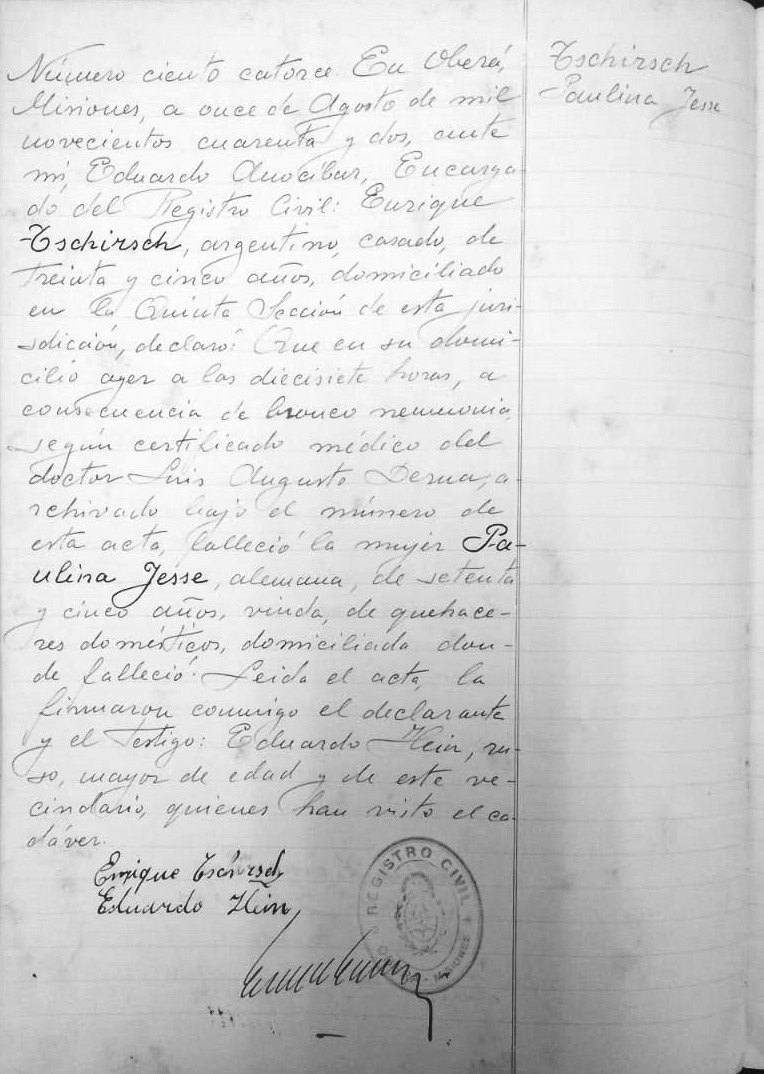 Número ciento catorce. En Oberá,
Misiones, a once de Agosto de mil
novecientos cuarenta y dos, ante
mí, Eduardo Anocíbar, Encarga-
do del Registro Civil: Enrique
Tschirsch, argentino, casado, de
treinta y cinco años, domiciliado
en la Quinta Sección de esta juri-
sdicción, declaró: Que en su domi-
cilio ayer a las diecisiete horas, a
consecuencia de bronco neumonia,
según certificado médico del
doctor Luis Augusto Derna, a-
rchivado bajo el número de
esta acta, falleció la mujer Pa-
ulina Jesse, alemana, de setenta
y cinco años, viuda, de quehace-
res domésticos, domiciliada don-
de falleció. Leida el acta, la
firmaron conmigo el declarante
y el testigo: Eduardo Hein, ru-
so, mayor de edad y de este ve-
cindario, quienes han visto el ca-
dáver.
Enrique Tschirsch
Eduardo Hein
REGISTRO CIVIL
MISIONES
Tschirsch
Paulina Jesse